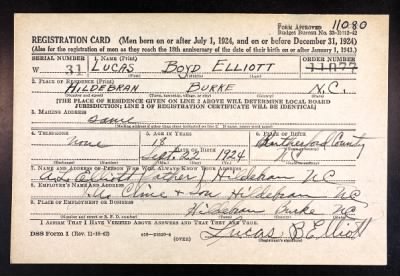 11080
FORM APPROVED
Budget Bureau No. 33-R012-42
REGISTRATION CARD (Men born on or after July 1, 1924, and on or before December 31, 1924)
(Also for the registration of men as they reach the 18th anniversary of the date of their birth on or after January 1, 1943.)
SERIAL NUMBER 1. NAME (Print) ORDER NUMBER
W 31 LUCAS BOYD ELLIOTT 11077
2. PLACE OF RESIDENCE (Print)
HILDEBRAN BURKE N.C.
[THE PLACE OF RESIDENCE GIVEN ON LINE 2 ABOVE WILL DETERMINE LOCAL BOARD
JURISDICTION; LINE 2 OF REGISTRATION CERTIFICATE WILL BE IDENTICAL]
3. MAILING ADDRESS
Same
4. TELEPHONE 5. AGE IN YEARS 6. PLACE OF BIRTH
none 18 Rutherford County
DATE OF BIRTH
Sept. 22 1924 N.C.
7. NAME AND ADDRESS OF PERSON WHO WILL ALWAYS KNOW YOUR ADDRESS
Elliott (Father) Hildebran N.C.
8. EMPLOYER'S NAME AND ADDRESS
Cline & Son Hildebran N.C.
9. PLACE OF EMPLOYMENT OR BUSINESS
Hildebran Burke N.C.
I AFFIRM THAT I HAVE VERIFIED ABOVE ANSWERS AND THAT THEY ARE TRUE.
DSS Form 1 (Rev. 11-16-42) (OVER) Lucas B Elliott
(Registrant's signature)